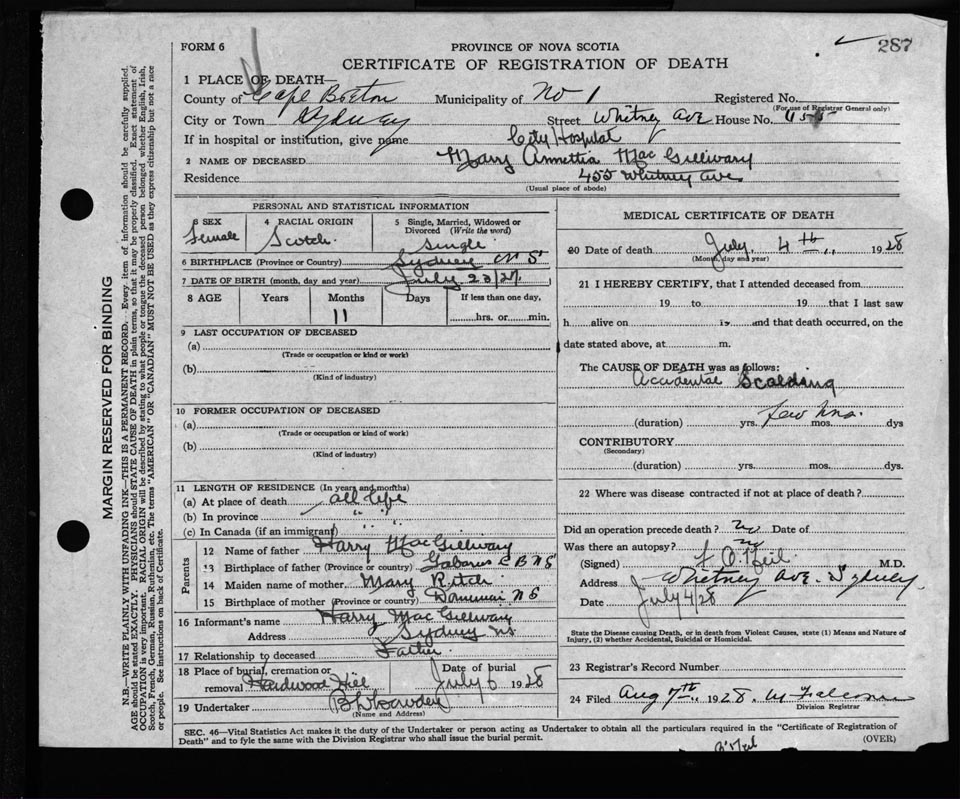 287
FORM 6
PROVINCE OF NOVA SCOTIA
CERTIFICATE OF REGISTRATION OF DEATH
1 PLACE OF DEATH—
County of Cape Breton Municipality of No 1 Registered No.
(For use of Registrar General only)
City or Town Sydney Street Whitney Ave House No. 455
If in hospital or institution, give name City Hospital
2 NAME OF DECEASED Mary Annettia Mac Gillivary
Residence 455 Whitney Ave
(Usual place of abode)
PERSONAL AND STATISTICAL INFORMATION
3 SEX Female
4 RACIAL ORIGIN Scotch.
5 Single, Married, Widowed or Divorced (Write the word) Single
6 BIRTHPLACE (Province or Country) Sydney N S
7 DATE OF BIRTH (month, day and year) July 23/27
8 AGE Years Months Days If less than one day,
11 hrs. or min.
9 LAST OCCUPATION OF DECEASED
(a)
(Trade or occupation or kind or work)
(b)
(Kind of industry)
10 FORMER OCCUPATION OF DECEASED
(a)
(Trade or occupation or kind of work)
(b)
(Kind of industry)
11 LENGTH OF RESIDENCE (In years and months)
(a) At place of death all life
(b) In province " "
(c) In Canada (if an immigrant) " "
Parents
12 Name of father Harry MacGillivary
13 Birthplace of father (Province or country) Gabarus C B N S
14 Maiden name of mother Mary Ritch
15 Birthplace of mother (Province or country) N S
16 Informant's name Harry Mac Gillivary
Address Sydney NS
17 Relationship to deceased Father
18 Place of burial, cremation or removal Hardwood Hill Date of burial July 6 1928
19 Undertaker
(Name and Address)
MEDICAL CERTIFICATE OF DEATH
20 Date of death July 4th 1928
(Month, day and year)
21 I HEREBY CERTIFY, that I attended deceased from
19 to 19 that I last saw
h alive on 19 and that death occurred, on the
date stated above, at m.
The CAUSE OF DEATH was as follows:
Accidental Scalding
(duration) yrs. few hrs. mos. dys
CONTRIBUTORY
(Secondary)
(duration) yrs. mos. dys.
22 Where was disease contracted if not at place of death?
Did an operation precede death? no Date of
Was there an autopsy? no
(Signed) F O'Neil M.D.
Address Whitney Ave. Sydney
Date July 4/28
State the Disease causing Death, or in death from Violent Causes, state (1) Means and Nature of
Injury, (2) whether Accidental, Suicidal or Homicidal.
23 Registrar's Record Number
24 Filed Aug 7th 1928.
Division Registrar
SEC. 46—Vital Statistics Act makes it the duty of the Undertaker or person acting as Undertaker to obtain all the particulars required in the "Certificate of Registration of
Death" and to fyle the same with the Division Registrar who shall issue the burial permit.
(OVER)
MARGIN RESERVED FOR BINDING
N.B.—WRITE PLAINLY WITH UNFADING INK—THIS IS A PERMANENT RECORD. Every item of information should be carefully supplied.
AGE should be stated EXACTLY. PHYSICIANS should STATE CAUSE OF DEATH in plain terms, so that it may be properly classified. Exact statement of
OCCUPATION is very important. RACIAL ORIGIN will be described by stating to what people or tongue the deceased person belonged whether English, Irish,
Scotch, French, German, Russian, Ruthenian, etc. The terms "AMERICAN" OR "CANADIAN" MUST NOT BE USED as they express citizenship but not a race
or people. See instructions on back of Certificate.